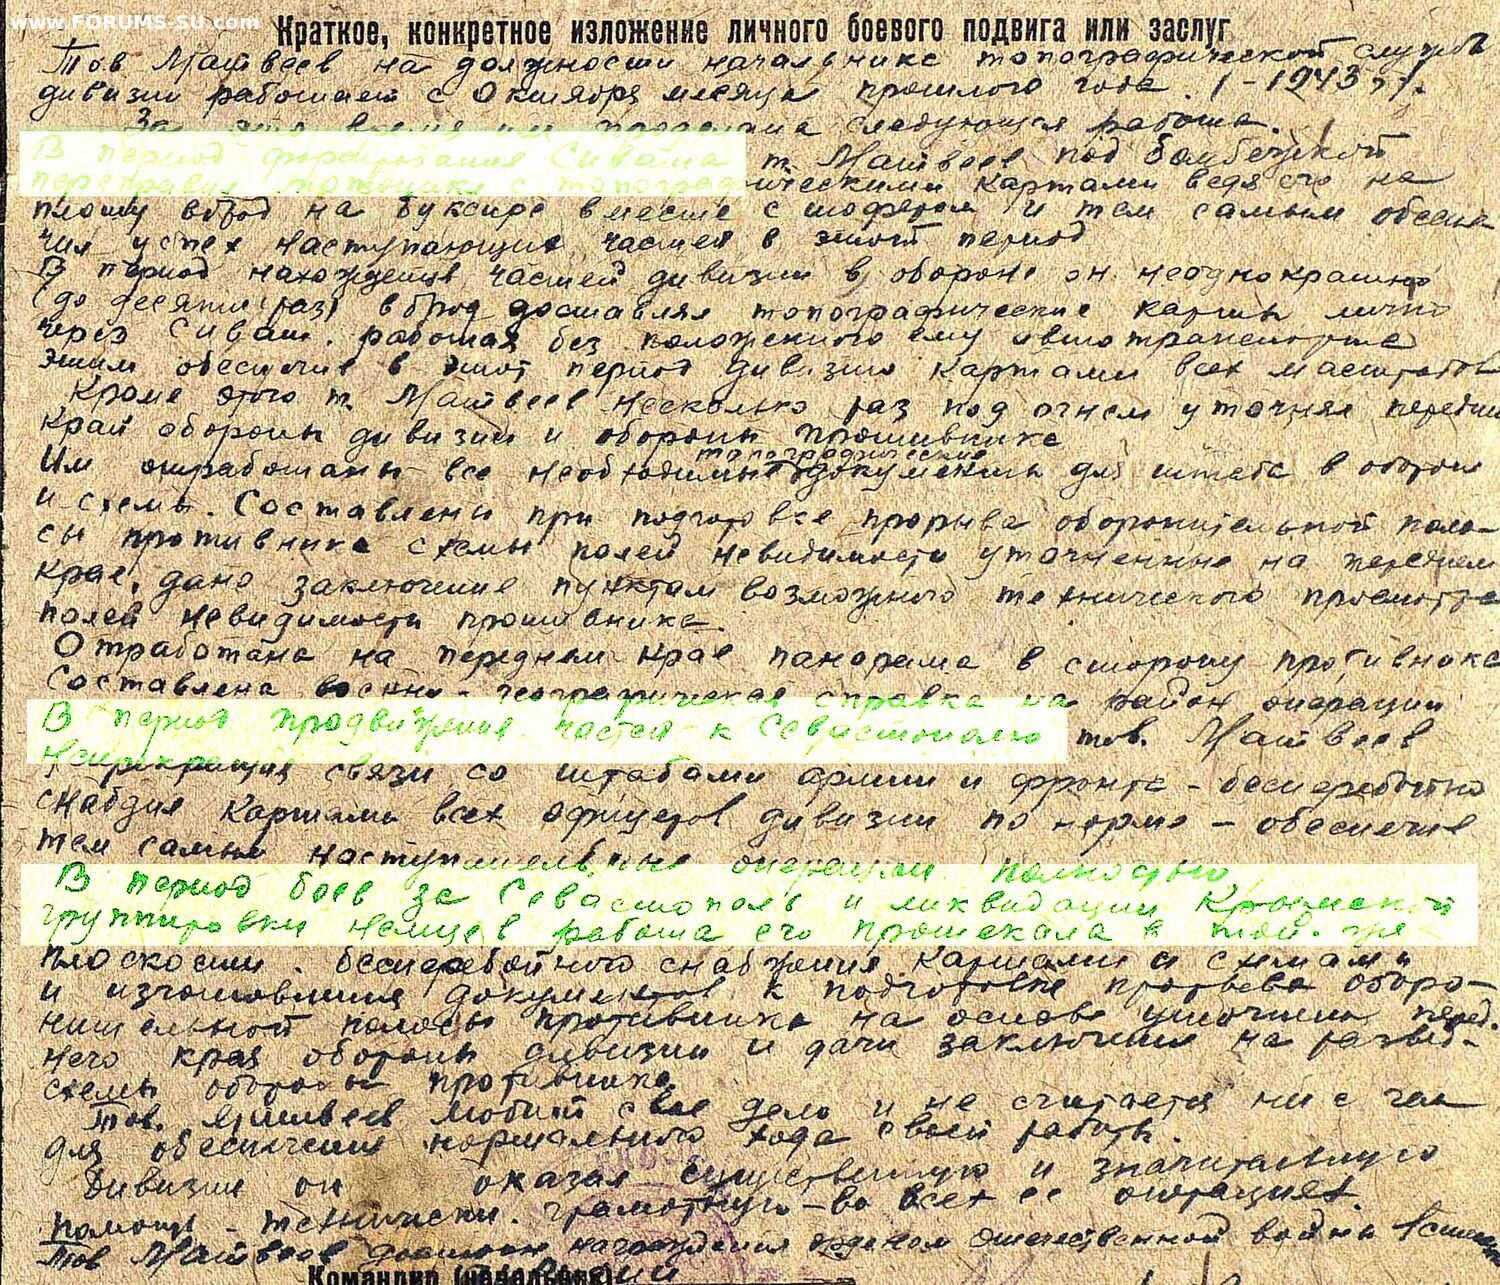 www.FORUMS-SU.com
Краткое, конкретное изложение личного боевого подвига или заслуг
Тов Матвеев на должности начальника топографической службы
дивизии работает с Октября месяца прошлого года. 1-1943 г.
За это время им проделана следующая работа.
В период форсирования Сиваша т. Матвеев под бомбежкой
переправил с топографическими картами ведя его на
плоту вброд на буксире вместе с шофером и тем самым обеспе-
чил успех наступающих частей в этот период
В период нахождения частей дивизии в обороне он неоднократно
(до десяти раз) вброд доставлял топографические карты лично
через Сиваш. работая без положенного ему автотранспорта
этим обеспечив в этот период дивизию картами всех масштабов
Кроме этого т. Матвеев несколько раз под огнем уточнял передний
край обороны дивизии и обороны противника
Им отработаны все необходимые топографические документы для штаба в обороне
и схемы. Составлены при подготовке прорыва оборонительной поло-
сы противника схемы полей невидимости уточненные на переднем
крае, дано заключение пунктам возможного технического просмотра
полей невидимости противника.
Отработана на переднем крае панорама в сторону противника
Составлена военно-географическая справка на район операции
В период продвижения частей к Севастополю тов. Матвеев
непрекращая связи со штабами армии и фронта - бесперебойно
снабдил картами всех офицеров дивизии по норме - обеспечив
тем самым наступательные операции полностью
В период боев за Севастополь и ликвидации Крымской
группировки немцев работа его протекала в той-же
плоскости. бесперебойного снабжения картами и схемами
и изготовления документов к подготовке прорыва оборо-
нительной полосы противника на основе уточнения перед.
него края обороны дивизии и дачи заключения на развед-
схемы обороны противника.
Тов. Матвеев любит свое дело и не считается ни с чем
для обеспечения нормального хода своей работы.
Дивизии он оказал существенную и значительную
помощь - технически. грамотную - во всех ее операциях.
Тов Матвеев достоин награждения орденом отечественной войны
Командир (начальник)